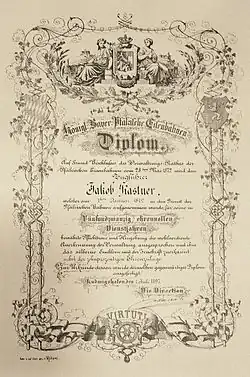 Königl. Bayer. Pfälzische Eisenbahnen.
Diplom.
Auf Grund Beschlusses des Verwaltungs-Rathes der
Pfälzischen Eisenbahnen vom 28ten Mai 1872 wird dem
Zugführer
Jakob Kastner,
welcher am 1ten Januar in den Dienst der
Pfälzischen Bahnen aufgenommen wurde, für seine in
Fünfundzwanzig ehrenvollen
Dienstjahren
bewährte Pflichttreue und Hingebung die wohlverdiente
Anerkennung der Verwaltung ausgesprochen und ihm
das silberne und die Inschrift
nebst der Ehrenzulage
Zur Urkunde dessen wurde demselben gegenwärtiges Diplom
ausgefertigt
Ludwigshafen den 1897
Die Direction
VIRTUTI